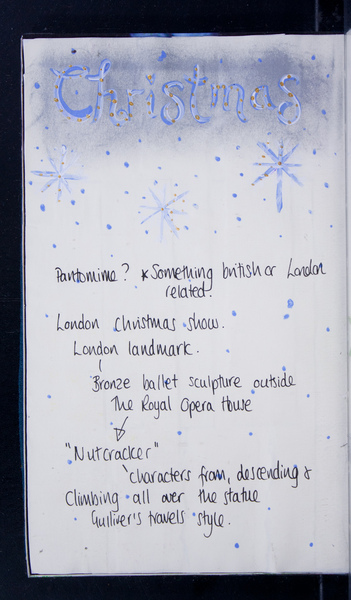 Christmas
Pantomime? * Something british or London
related.
London christmas show.
London landmark.
Bronze ballet sculpture outside
The Royal Opera House
"Nutcracker"
characters from, descending &
Climbing all over the statue
Gulliver's travels style.